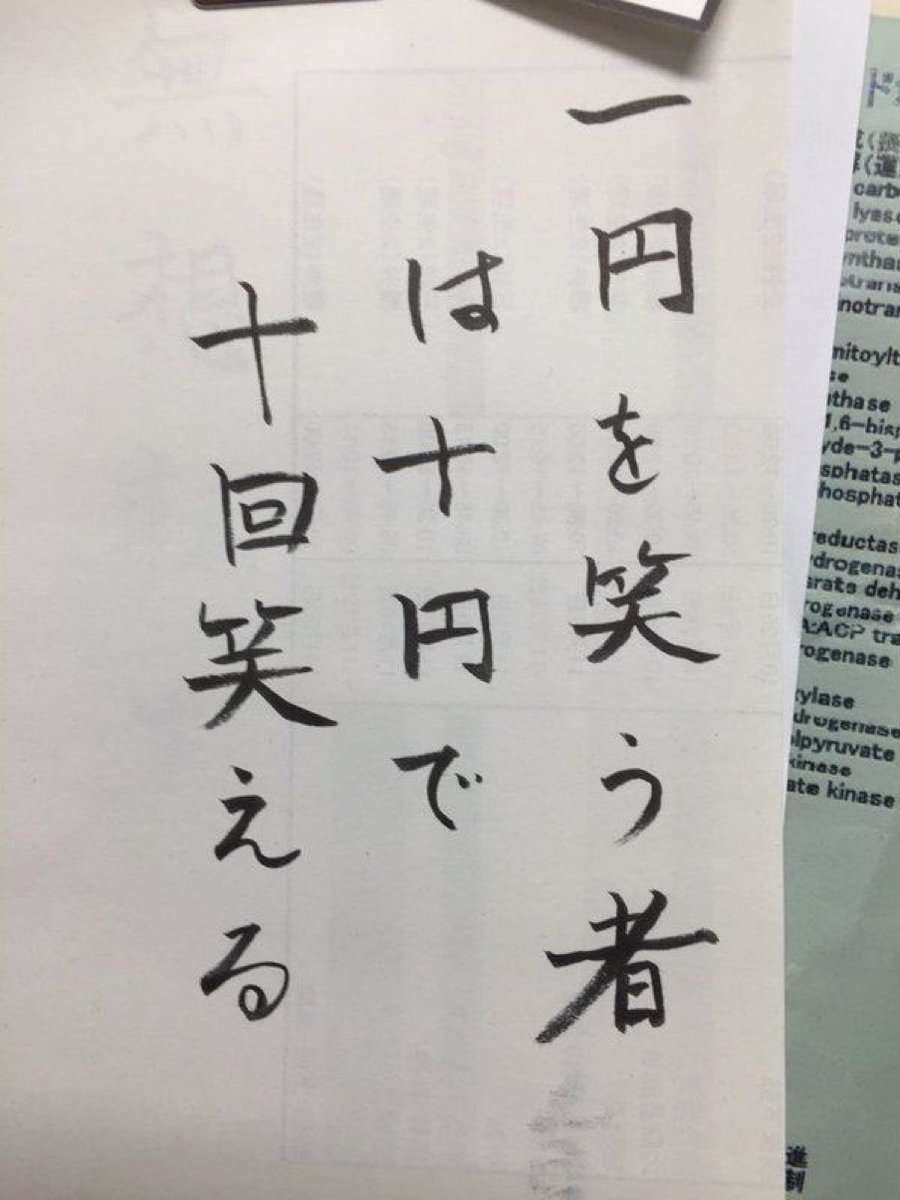 一円を笑う者
は十円で
十回笑える
carb
lyase
prote
ntha
notra
mitoylt
se
thase
1,6-bis
yde-3-p
sphatas
hosphat
reductas
drogenas
rogenase
ACP tra
rogenase
xylase
drogenase
lpyruvate
kinase
ate kinase
進
制